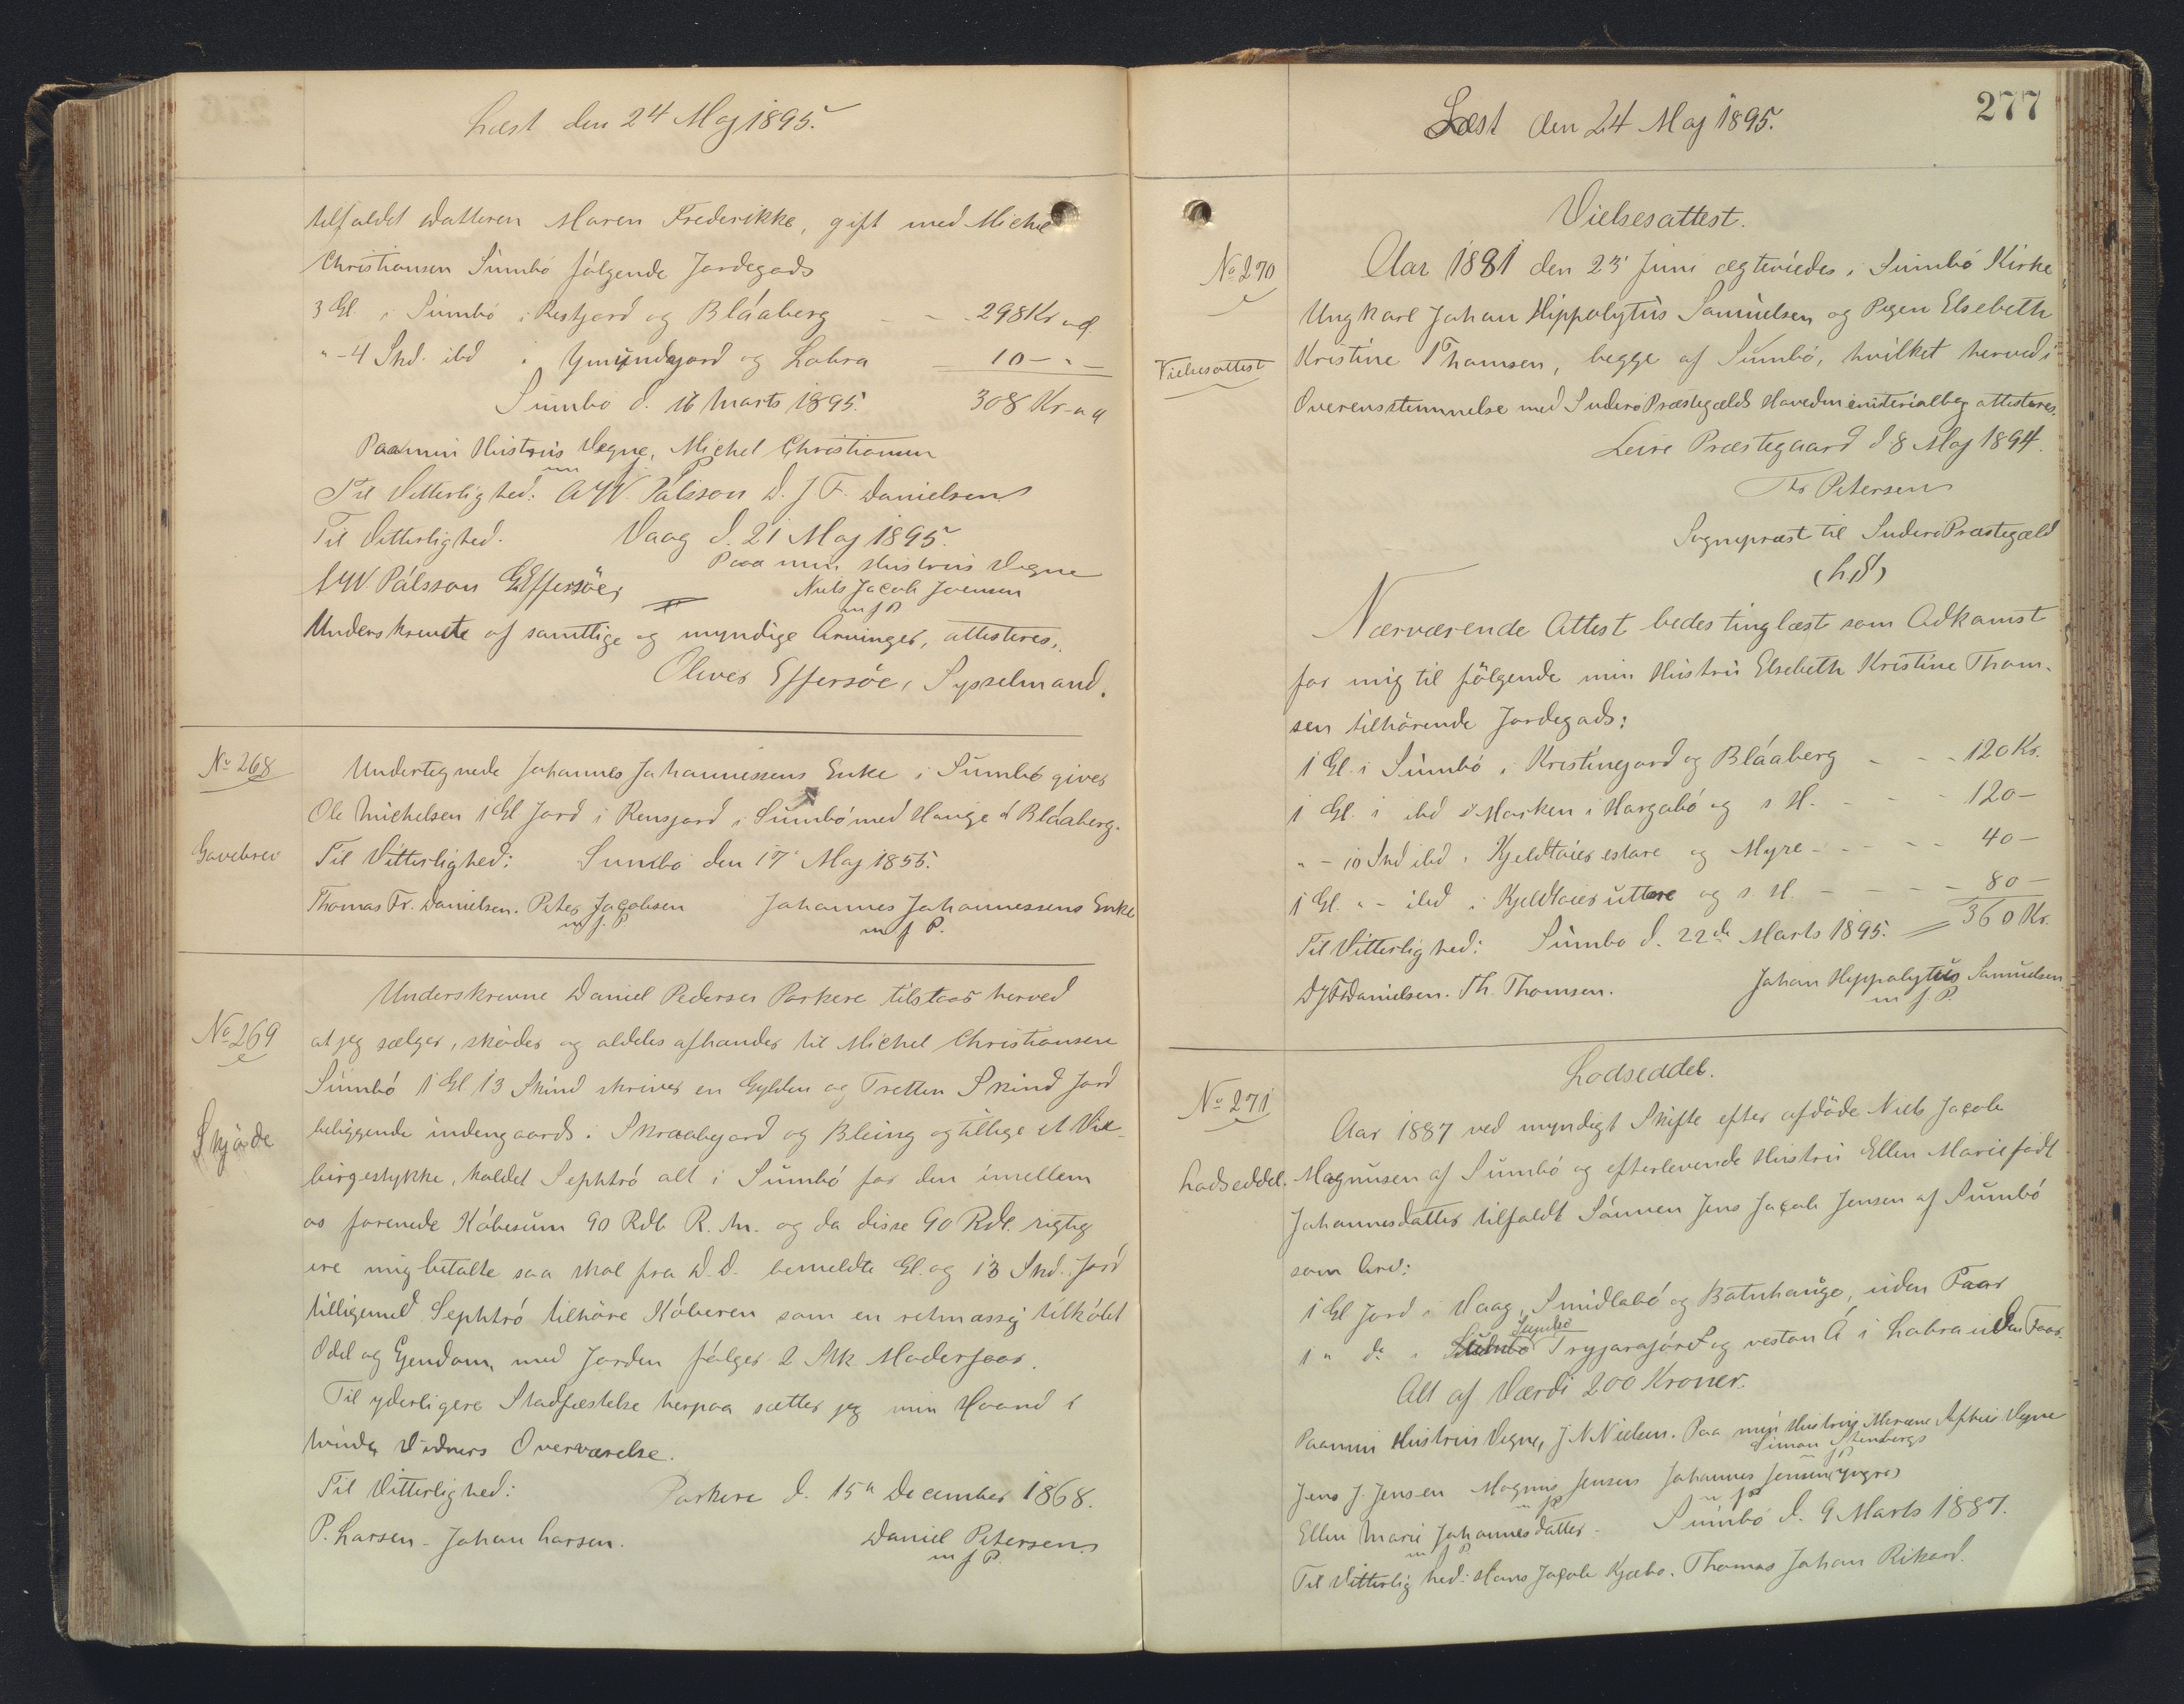 Læst den 24 Maj 1895.
tilfaldet Datteren Maren Frederikke, gift med Michel
Christiansen Sumbø følgende Jordegods
3 Gl. i Sumbø i Restjord og Bláaberg - - - 298 Kr
" - 4 Skd. ibd i Gmundgjord og Lobra 10 - " -
Sumbø d. 16 Marts 1895. 308 Kr
Paa min Hustrus Vegne, Michel Christiansen
Til Vitterlighed: A W. Pálsson D. J. F. Danielsen
Til Vitterlighed. Vaag d. 21 Maj 1895.
Paa min Hustrus Vegne
A W Pálsson G. Effersöe, Niels Jacob Joensen
m f P
Underskrevete af samtlige og myndige Arvinger, attesteres.
Oliver Effersöe, Sysselmand.
No 268
Gavebrev
Undertegnede Johannes Johannessens Enke i Sumbø giver
Ole Michelsen 1 Gl Jord i Rensjord i Sumbø med Hauge d Bláaberg.
Til Vitterlighed: Sumbø den 17 Maj 1855.
Thomas Fr. Danielsen. Peter Jacobsen Johannes Johannessens Enke
m f. P. m f P.
No 269
Skjøde
Underskrevne Daniel Pedersen Porkere tilstaar herved
at jeg sælger, skøder og aldeles afhænder til Michel Christiansen
Sumbø 1 Gl 13 Skind skriver en Gylden og Tretten Skind Jord
beliggende indengaards i Skraabgjord og Bleing og tillige et Vel-
birgestykke, kaldet Sephtró alt i Sumbø for den imellem
os forenede Købesum 90 Rdl. R. M. og da disse 90 Rdl. rigtig
ere mig betalte saa skal fra D. D. bemeldte Gl. og 13 Skd. Jord
tilligemed Sephtró tilhøre Køberen som en retmæssig tilkøbt
Odel og Ejendom, med Jorden følger 2 Stk Moderfaar.
Til yderligere Stadfæstelse herpaa sætter jeg min Haand i
tvende Vidners Overværelse.
Til Vitterlighed: Porkere d. 15 December 1868.
P. Larsen - Johan Larsen. Daniel Petersen
m f P.
277
Læst den 24 Maj 1895.
Vielsesattest.
No 270
Vielsesattest
Aar 1881 den 23 Juni ægteviedes i Sumbø Kirke
Ungkarl Johan Hippolytus Samuelsen og Pigen Elsebeth
Kristine Thomsen, begge af Sumbø, hvilket herved i
Overensstemmelse med Suderø Præstegælds Hovedministerialbog attesteres.
Leire Præstegaard d 8 Maj 1894.
Fr Petersen
Sognepræst til Suderø Præstegæld
(L. S.)
Nærværende Attest bedes tinglæst som Adkomst
for mig til følgende min Hustru Elsebeth Kristine Thom-
sen tilhørende Jordegods:
1 Gl. i Sumbø i Kristinegjord og Bláaberg - - - 120 Kr.
1 Gl. i ibd i Marken i Hargabø og s. H. - - - 120 -
" - 10 Skd ibd i Kjeldtaies estare og Myre - - - - 40 -
1 Gl. " - ibd i Kjeldtaies uttare og s. H. - - - - 80 -
Til Vitterlighed: Sumbø d. 22de Marts 1895. 360 Kr.
D J F Danielsen. Th. Thomsen. Johan Hippolytus Samuelsen
m f. P.
Lodseddel.
No 271
Lodseddel.
Aar 1887 ved myndigt Skifte efter afdøde Niels Jacob
Magnusen af Sumbø og efterlevende Hustru Ellen Marie født
Johannesdatter tilfaldt Sønnen Jens Jacob Jensen af Sumbø
som Arv:
1 Gl Jord i Vaag, Smidlabø og Botnhauge, uden Faar
Sumbø
1 " do i Tryjarafóret og vestan Á i Lobra uden Faar.
Alt af Værdi 200 Kroner.
Paa min Hustrus Vegne, J N Nielsen. Paa min Hustru Vegne
Simon Stenbergs
Jens J. Jensen Magnus Jensen Johannes Jensen (yngre)
Ellen Marie Johannesdatter - Sumbø d. 9 Marts 1887.
m f P
Til Vitterlighed: Hans Jacob Kjærbo. Thomas Johan Rikard.